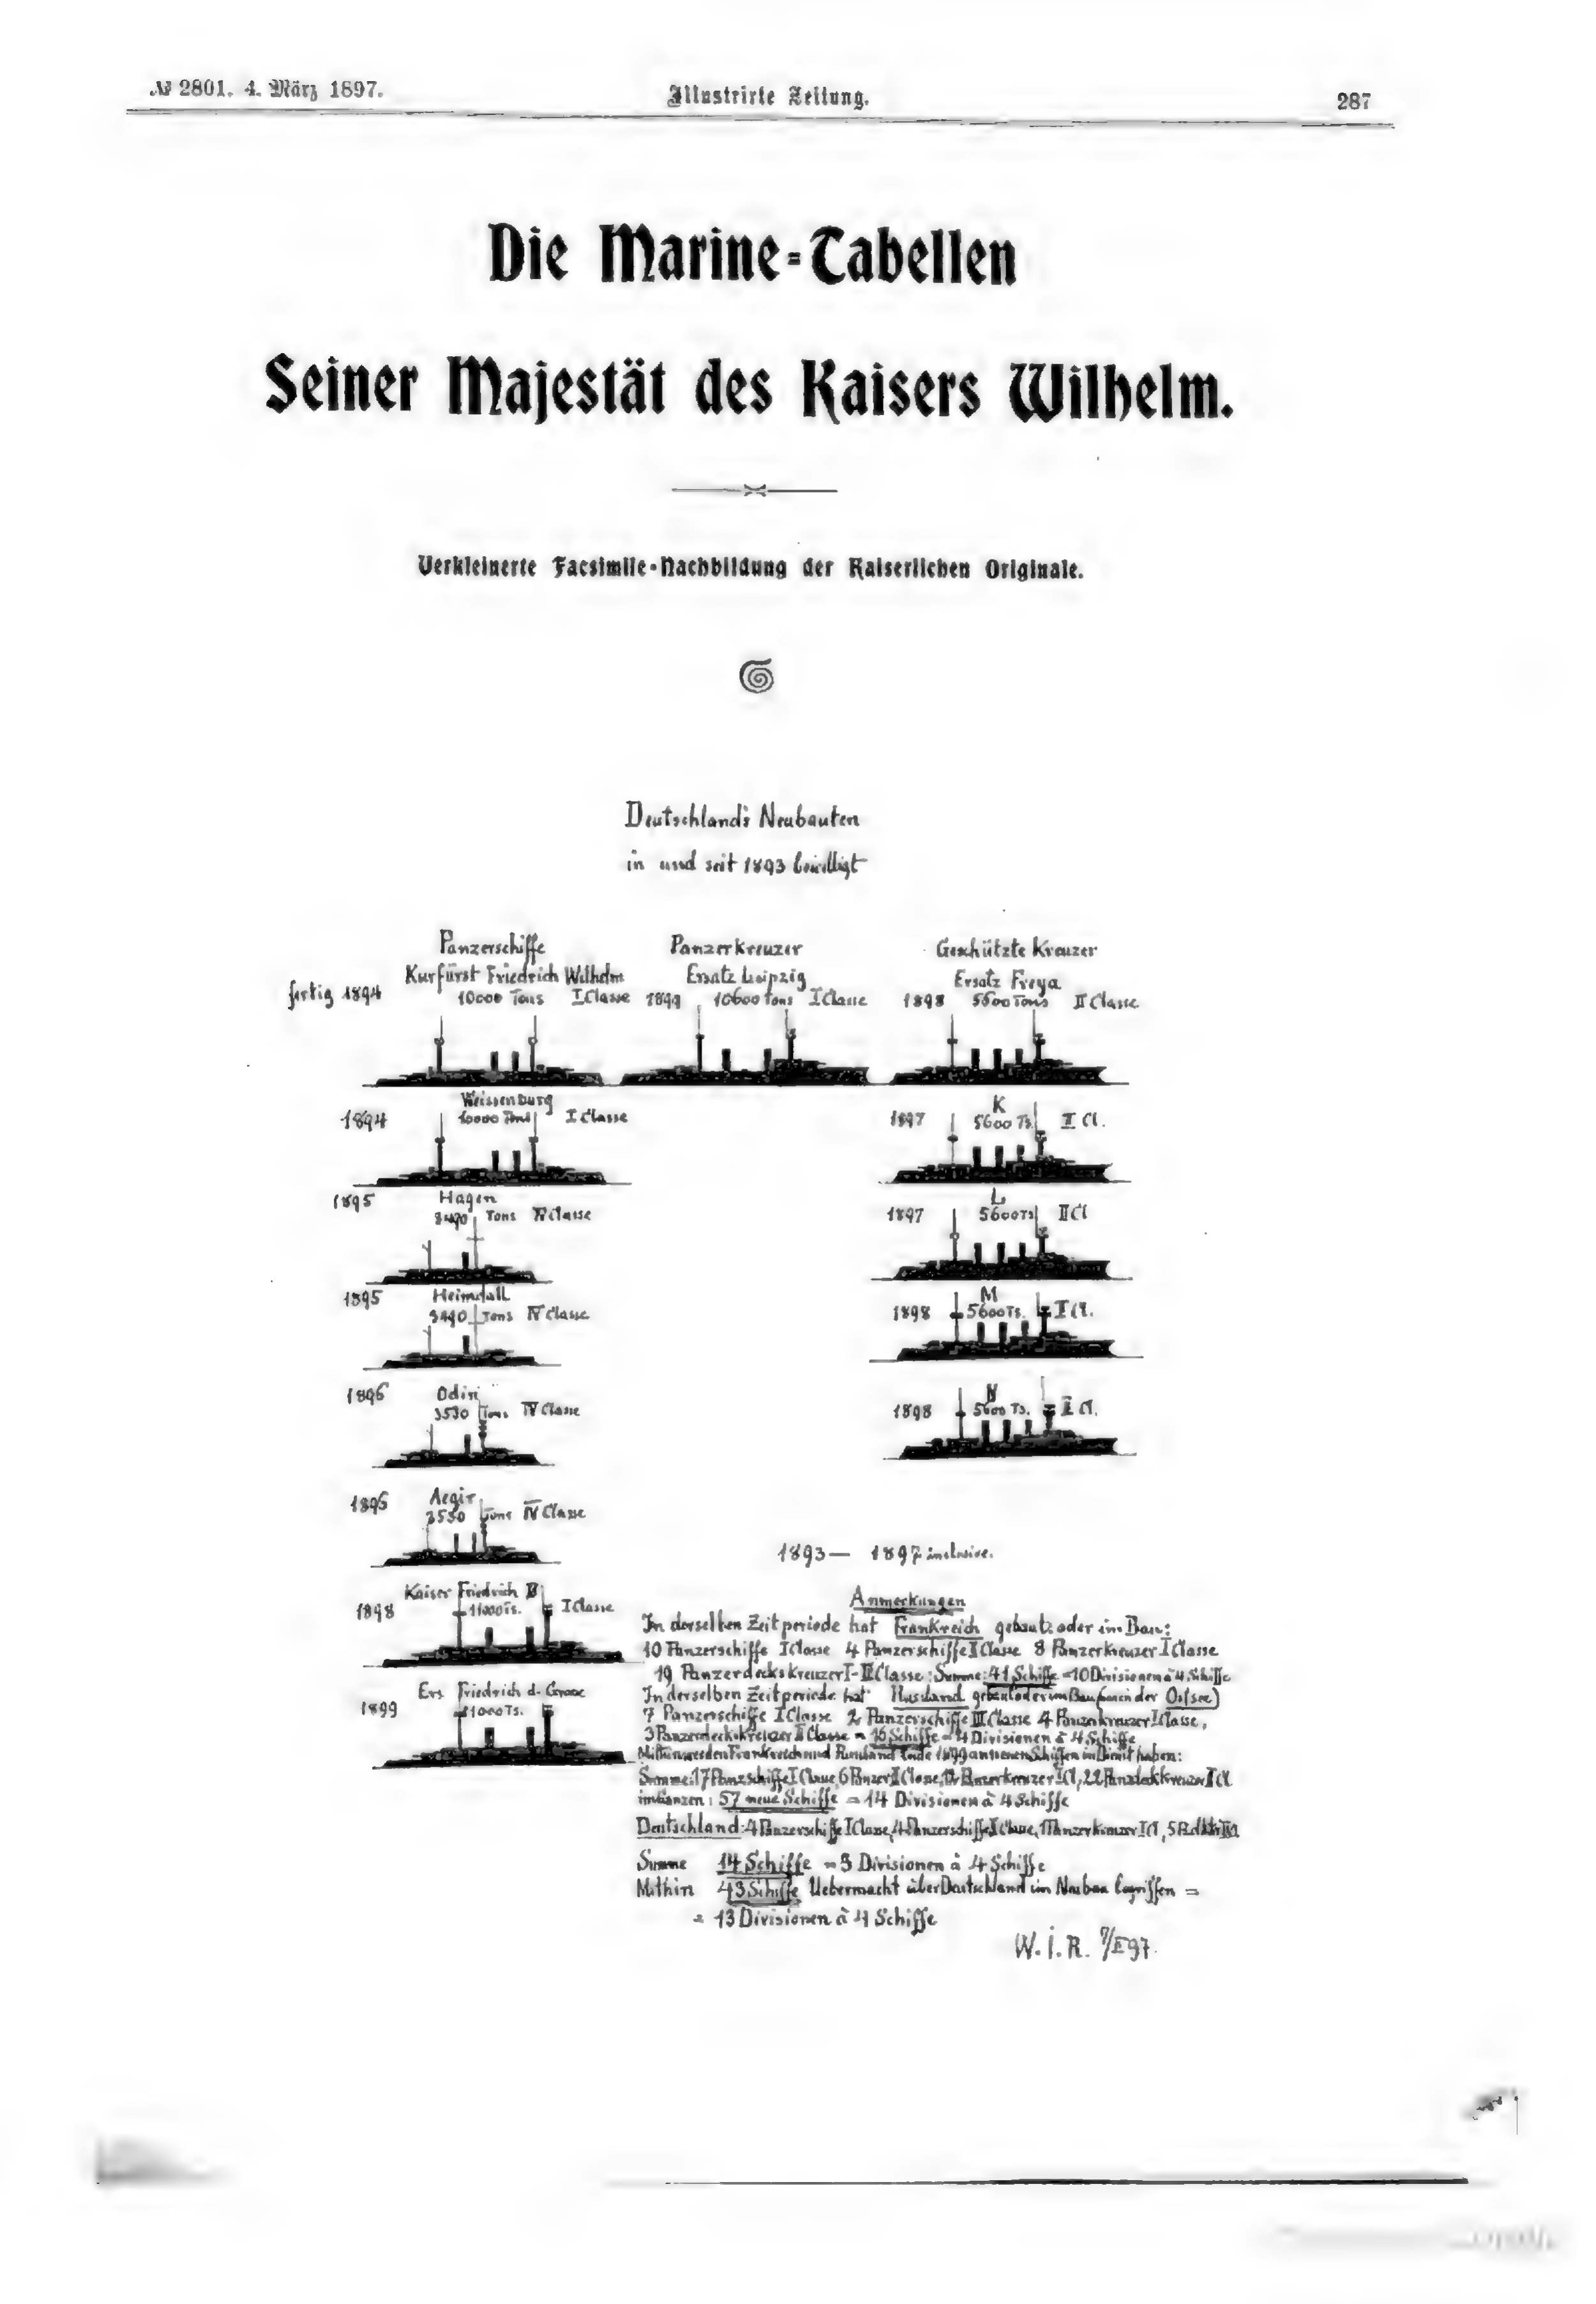 № 2801. 4. März 1897.
Illustrirte Zeitung.
287
Die Marine-Tabellen
Seiner Majestät des Kaisers Wilhelm.
Verkleinerte Facsimile-Nachbildung der Kaiserlichen Originale.
Deutschland's Neubauten
in und seit 1893 bewilligt
Panzerschiffe
Kurfürst Friedrich Wilhelm
fertig 1894 10000 Tons I Classe
Panzerkreuzer
Ersatz Leipzig
1899 10600 tons I Classe
Geschützte Kreuzer
Ersatz Freya
1898 5600 Tons II Classe
Weissenburg
1894 10000 Tons I Classe
1895 Hagen
Tons IV Classe
1895 Heimdall
Tons IV Classe
1896 Odin
3530 Tons IV Classe
1896 Aegir
3530 Tons IV Classe
Kaiser Friedrich
1898 11000 Ts. I Classe
Ers. Friedrich d. Grosse
1899 11000 Ts.
K
1897 5600 Ts. II Cl.
L
1897 5600 Ts II Cl
M
1898 5600 Ts. Cl.
N
1898 5600 Ts. Cl.
1893 — 1897 inclusive.
Anmerkungen
In derselben Zeitperiode hat Frankreich gebaut oder im Bau:
10 Panzerschiffe I Classe 4 Panzerschiffe Classe 8 Panzerkreuzer I Classe
19 Panzerdeckskreuzer I- Classe; Summe: 41 Schiffe = 10 Divisionen à 4 Schiffe
In derselben Zeitperiode hat Russland gebaut oder im Bau in der Ostsee)
7 Panzerschiffe I Classe 2 Panzerschiffe III Classe 4 Panzerkreuzer I Classe,
3 Panzerdeck-Kreuzer II Classe = 16 Schiffe = 4 Divisionen à 4 Schiffe
Mithin werden Frankreich und Russland Ende 1899 an neuen Schiffen im Dienst haben:
Summe: 17 Panzschiffe I Classe, 6 Panzer Classe, 12 Panzerkreuzer I Cl, 22 Panzdeckkreuzer Cl
im Ganzen: 57 neue Schiffe = 14 Divisionen à 4 Schiffe
Deutschland: 4 Panzerschiffe I Classe, 4 Panzerschiffe Classe, 1 Panzerkreuzer I Cl, 5
Summe 14 Schiffe = 3 Divisionen à 4 Schiffe
Mithin 43 Schiffe Uebermacht über Deutschland im Neubau begriffen =
= 13 Divisionen à 4 Schiffe
W. I. R. 97.